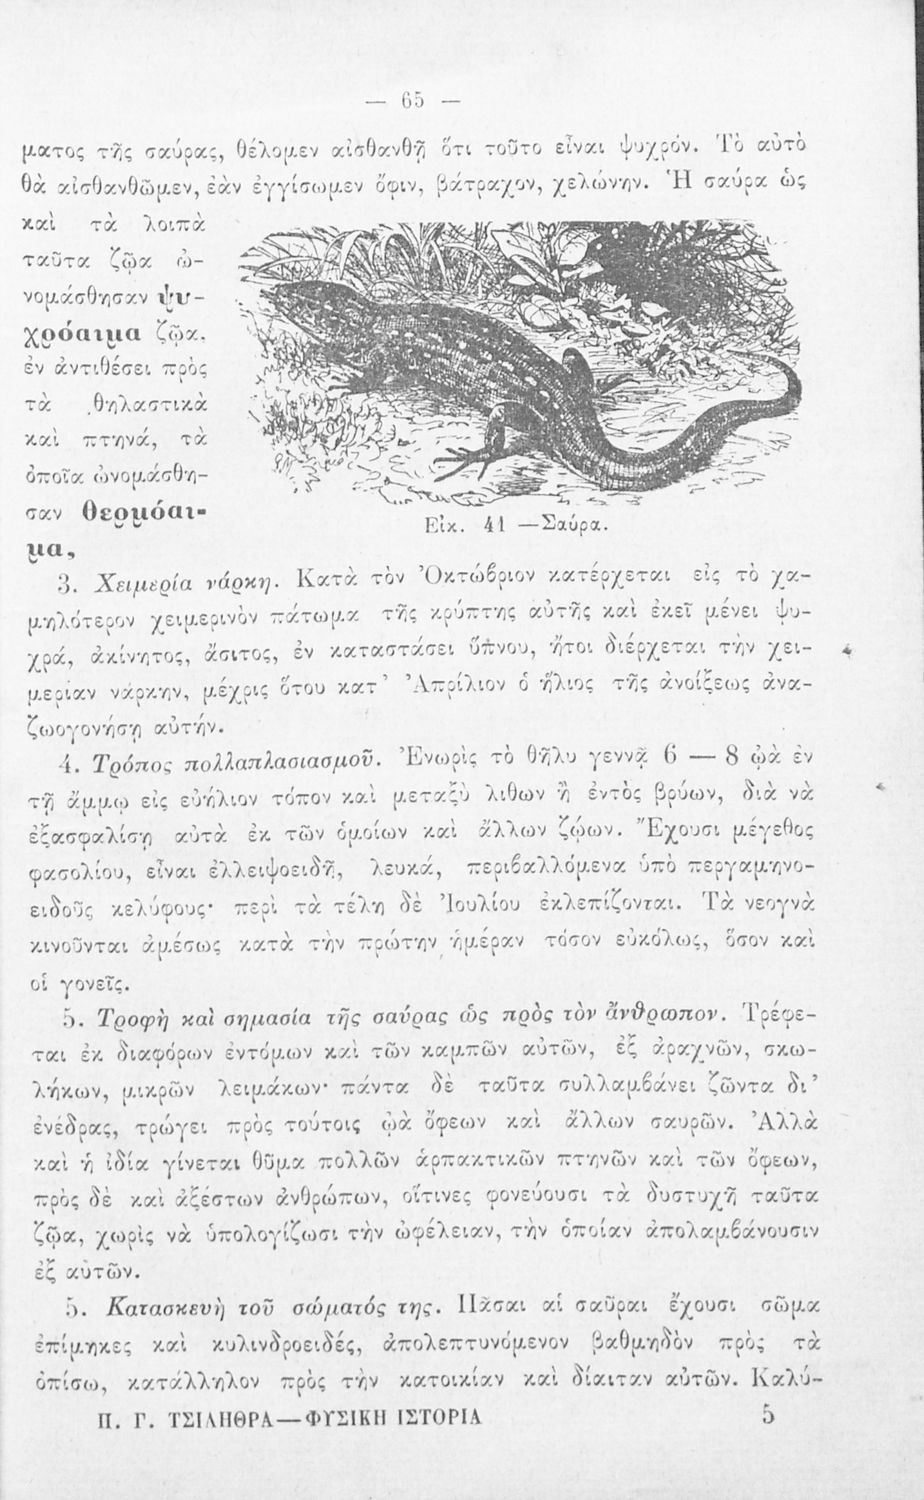 — 65 —
ματος τῆς σαύρας, θέλομεν αἰσθανθῆ ὅτι τοῦτο εἶναι ψυχρόν. Τὸ αὐτὸ
θὰ αἰσθανθῶμεν, ἐὰν ἐγγίσωμεν ὄφιν, βάτραχον, χελώνην. Ἡ σαύρα ὡς
καὶ τὰ λοιπὰ
ταῦτα ζῷα ὠ-
νομάσθησαν ψυ-
χρόαιμα ζῷα,
ἐν ἀντιθέσει πρὸς
τὰ θηλαστικὰ
καὶ πτηνά, τὰ
ὁποῖα ὠνομάσθη-
σαν θερμόαι-
μα,
Εἰκ. 41 —Σαύρα.
3. Χειμερία νάρκη. Κατὰ τὸν Ὀκτώβριον κατέρχεται εἰς τὸ χα-
μηλότερον χειμερινὸν πάτωμα τῆς κρύπτης αὐτῆς καὶ ἐκεῖ μένει ψυ-
χρά, ἀκίνητος, ἄσιτος, ἐν καταστάσει ὕπνου, ἤτοι διέρχεται τὴν χει-
μερίαν νάρκην, μέχρις ὅτου κατ' Ἀπρίλιον ὁ ἥλιος τῆς ἀνοίξεως ἀνα-
ζωογονήσῃ αὐτήν.
4. Τρόπος πολλαπλασιασμοῦ. Ἐνωρὶς τὸ θῆλυ γεννᾷ 6 — 8 ᾠὰ ἐν
τῇ ἄμμῳ εἰς εὐήλιον τόπον καὶ μεταξὺ λίθων ἢ ἐντὸς βρύων, διὰ νὰ
ἐξασφαλίσῃ αὐτὰ ἐκ τῶν ὁμοίων καὶ ἄλλων ζῴων. Ἔχουσι μέγεθος
φασολίου, εἶναι ἐλλειψοειδῆ, λευκά, περιβαλλόμενα ὑπὸ περγαμηνο-
ειδοῦς κελύφους· περὶ τὰ τέλη δὲ Ἰουλίου ἐκλεπίζονται. Τὰ νεογνὰ
κινοῦνται ἀμέσως κατὰ τὴν πρώτην ἡμέραν τόσον εὐκόλως, ὅσον καὶ
οἱ γονεῖς.
5. Τροφὴ καὶ σημασία τῆς σαύρας ὡς πρὸς τὸν ἄνθρωπον. Τρέφε-
ται ἐκ διαφόρων ἐντόμων καὶ τῶν καμπῶν αὐτῶν, ἐξ ἀραχνῶν, σκω-
λήκων, μικρῶν λειμάκων· πάντα δὲ ταῦτα συλλαμβάνει ζῶντα δι'
ἐνέδρας, τρώγει πρὸς τούτοις ᾠὰ ὄφεων καὶ ἄλλων σαυρῶν. Ἀλλὰ
καὶ ἡ ἰδία γίνεται θῦμα πολλῶν ἁρπακτικῶν πτηνῶν καὶ τῶν ὄφεων,
πρὸς δὲ καὶ ἀξέστων ἀνθρώπων, οἵτινες φονεύουσι τὰ δυστυχῆ ταῦτα
ζῷα, χωρὶς νὰ ὑπολογίζωσι τὴν ὠφέλειαν, τὴν ὁποίαν ἀπολαμβάνουσιν
ἐξ αὐτῶν.
5. Κατασκευὴ τοῦ σώματός της. Πᾶσαι αἱ σαῦραι ἔχουσι σῶμα
ἐπίμηκες καὶ κυλινδροειδές, ἀπολεπτυνόμενον βαθμηδὸν πρὸς τὰ
ὀπίσω, κατάλληλον πρὸς τὴν κατοικίαν καὶ δίαιταν αὐτῶν. Καλύ-
Π. Γ. ΤΣΙΛΗΘΡΑ—ΦΥΣΙΚΗ ΙΣΤΟΡΙΑ 5